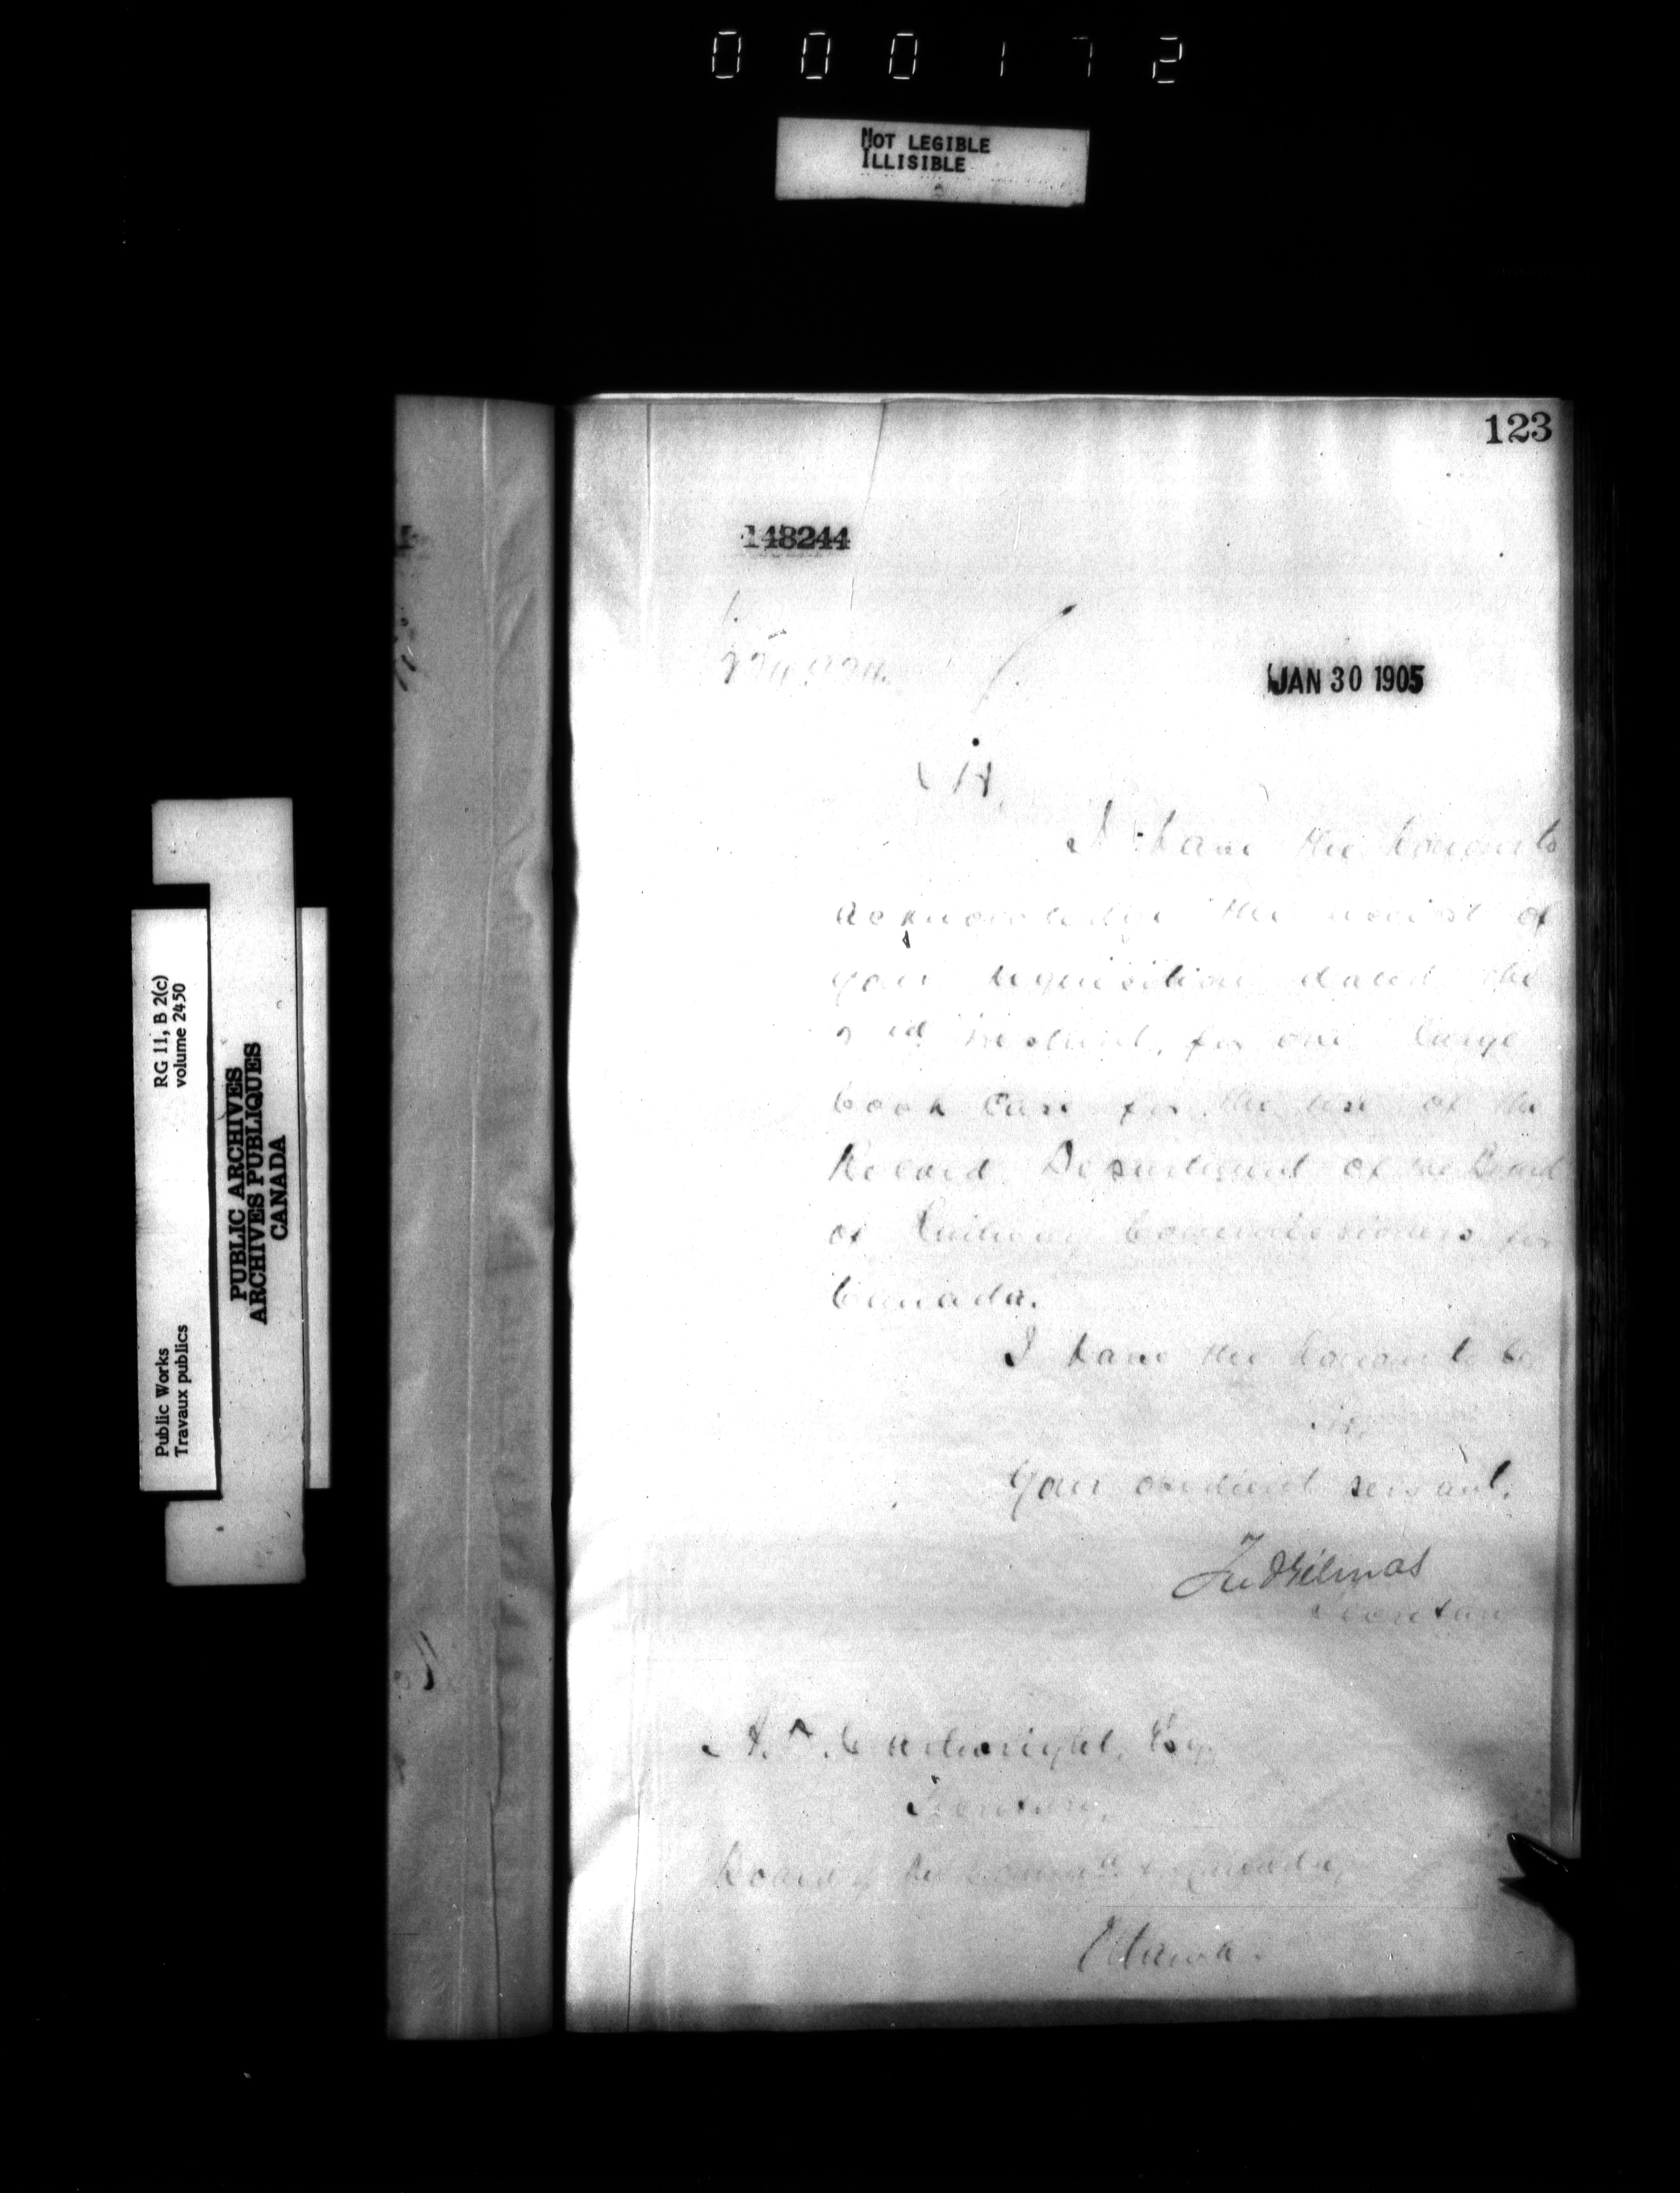 000172
NOT LEGIBLE
ILLISIBLE
123
148244
JAN 30 1905
Sir,
I have the honour to
acknowledge the receipt of
your requisition dated the
instant, for one large
book case for the use of the
Record Department of the Board
of Railway Commissioners for
Canada.
I have the honour to be
Sir,
Your obedient servant,
Secretary
Cartwright, Esq.
Secretary,
Board of Canada,
Ottawa.
RG 11, B 2(c)
volume 2450
Public Works
Travaux publics
PUBLIC ARCHIVES
ARCHIVES PUBLIQUES
CANADA